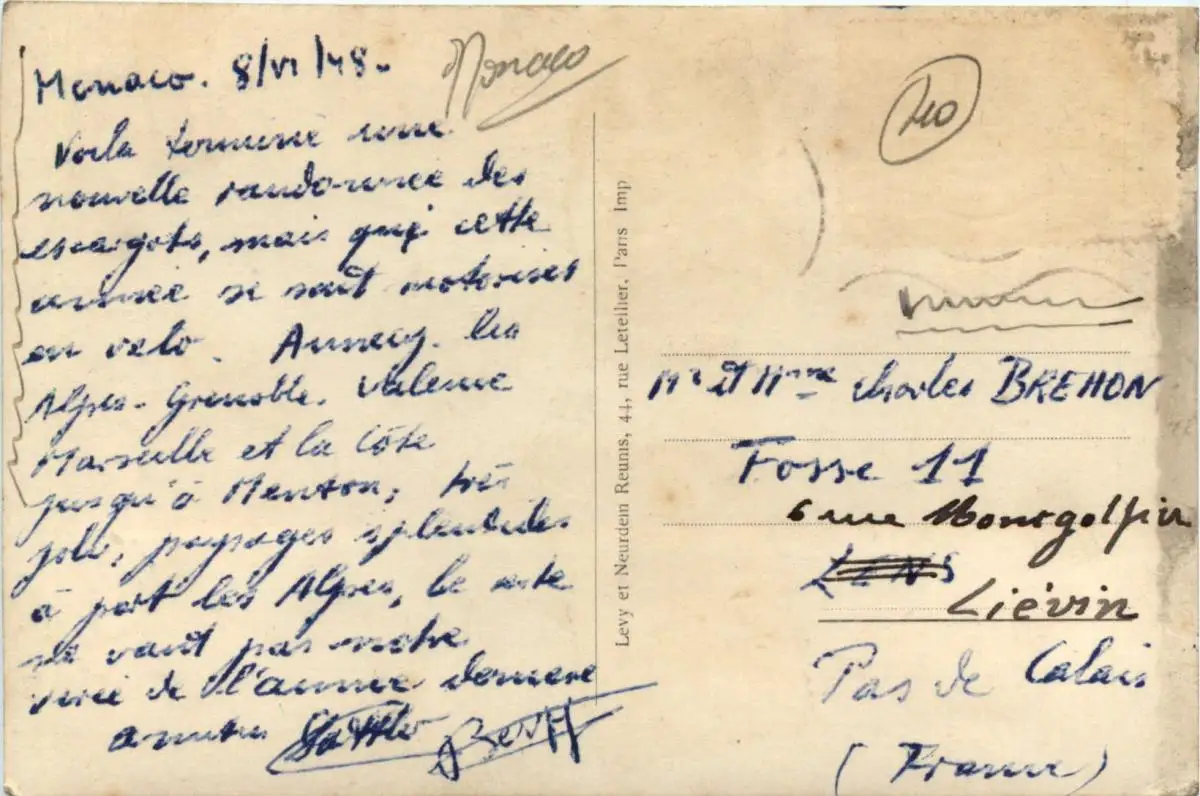 Monaco. 8/VI/48.
Monaco
Voila terminé une
nouvelle randonnée des
escargots, mais qui cette
année se sont motorisés
en velo. Annecy. les
Alpes. Grenoble. Valence
Marseille et la Côte
jusqu'à Menton, très
joli, paysages splendides
à part les Alpes, le reste
ne vaut pas notre
virée de l'année derniere
amities
Levy et Neurdein Reunis, 44, rue Letellier, Paris Imp
210
Mr et Mme Charles BREHON
Fosse 11
6 rue Montgolfier
LENS
Liévin
Pas de Calais
(France)